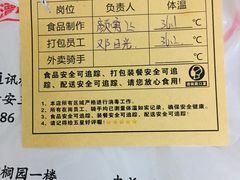 岗位 负责人 体温
食品制作 ℃
打包员工 邓日光 ℃
外卖骑手 ℃
食品安全可追踪、打包装餐安全可追
踪、配送安全可追踪、请您放心食用!
1、本店所有区域严格进行消毒工作。
2、所有在岗员工、骑手均已测量体温如实记录、确保安全健康。
3、食品安全可追踪、打包装餐安全可追踪、配送安全可追踪。
4、请记得给五星好评喔!
通讯
安三
86
桐园一楼